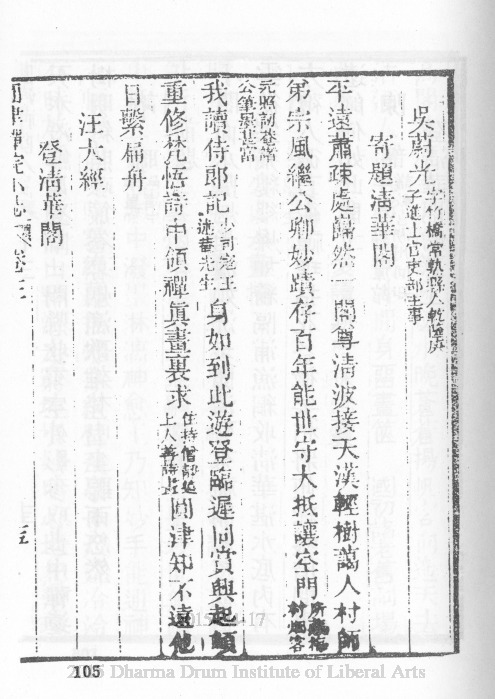 吳蔚光 字竹橋常熟縣人乾隆庚子進士官吏部主事
寄題清華閣
平遠蕭疎處巋然一閣尊清波接天漢輕樹藹人村師
弟宗風繼公卿妙蹟存百年能世守大抵讓空門 所藏梅村烟客
元照訒菴諸公筆墨甚富
我讀侍郎記 少司寇王述菴先生 身如到此遊登臨遲同賞興起願
重修梵悟詩中領禪眞畫裏求 住持僧 上人善詩畫 圓津知不遠他
日繫扁舟
汪大經
登清華閣
圓津禪院小志 卷三
105
Dharma Drum Institute of Liberal Arts